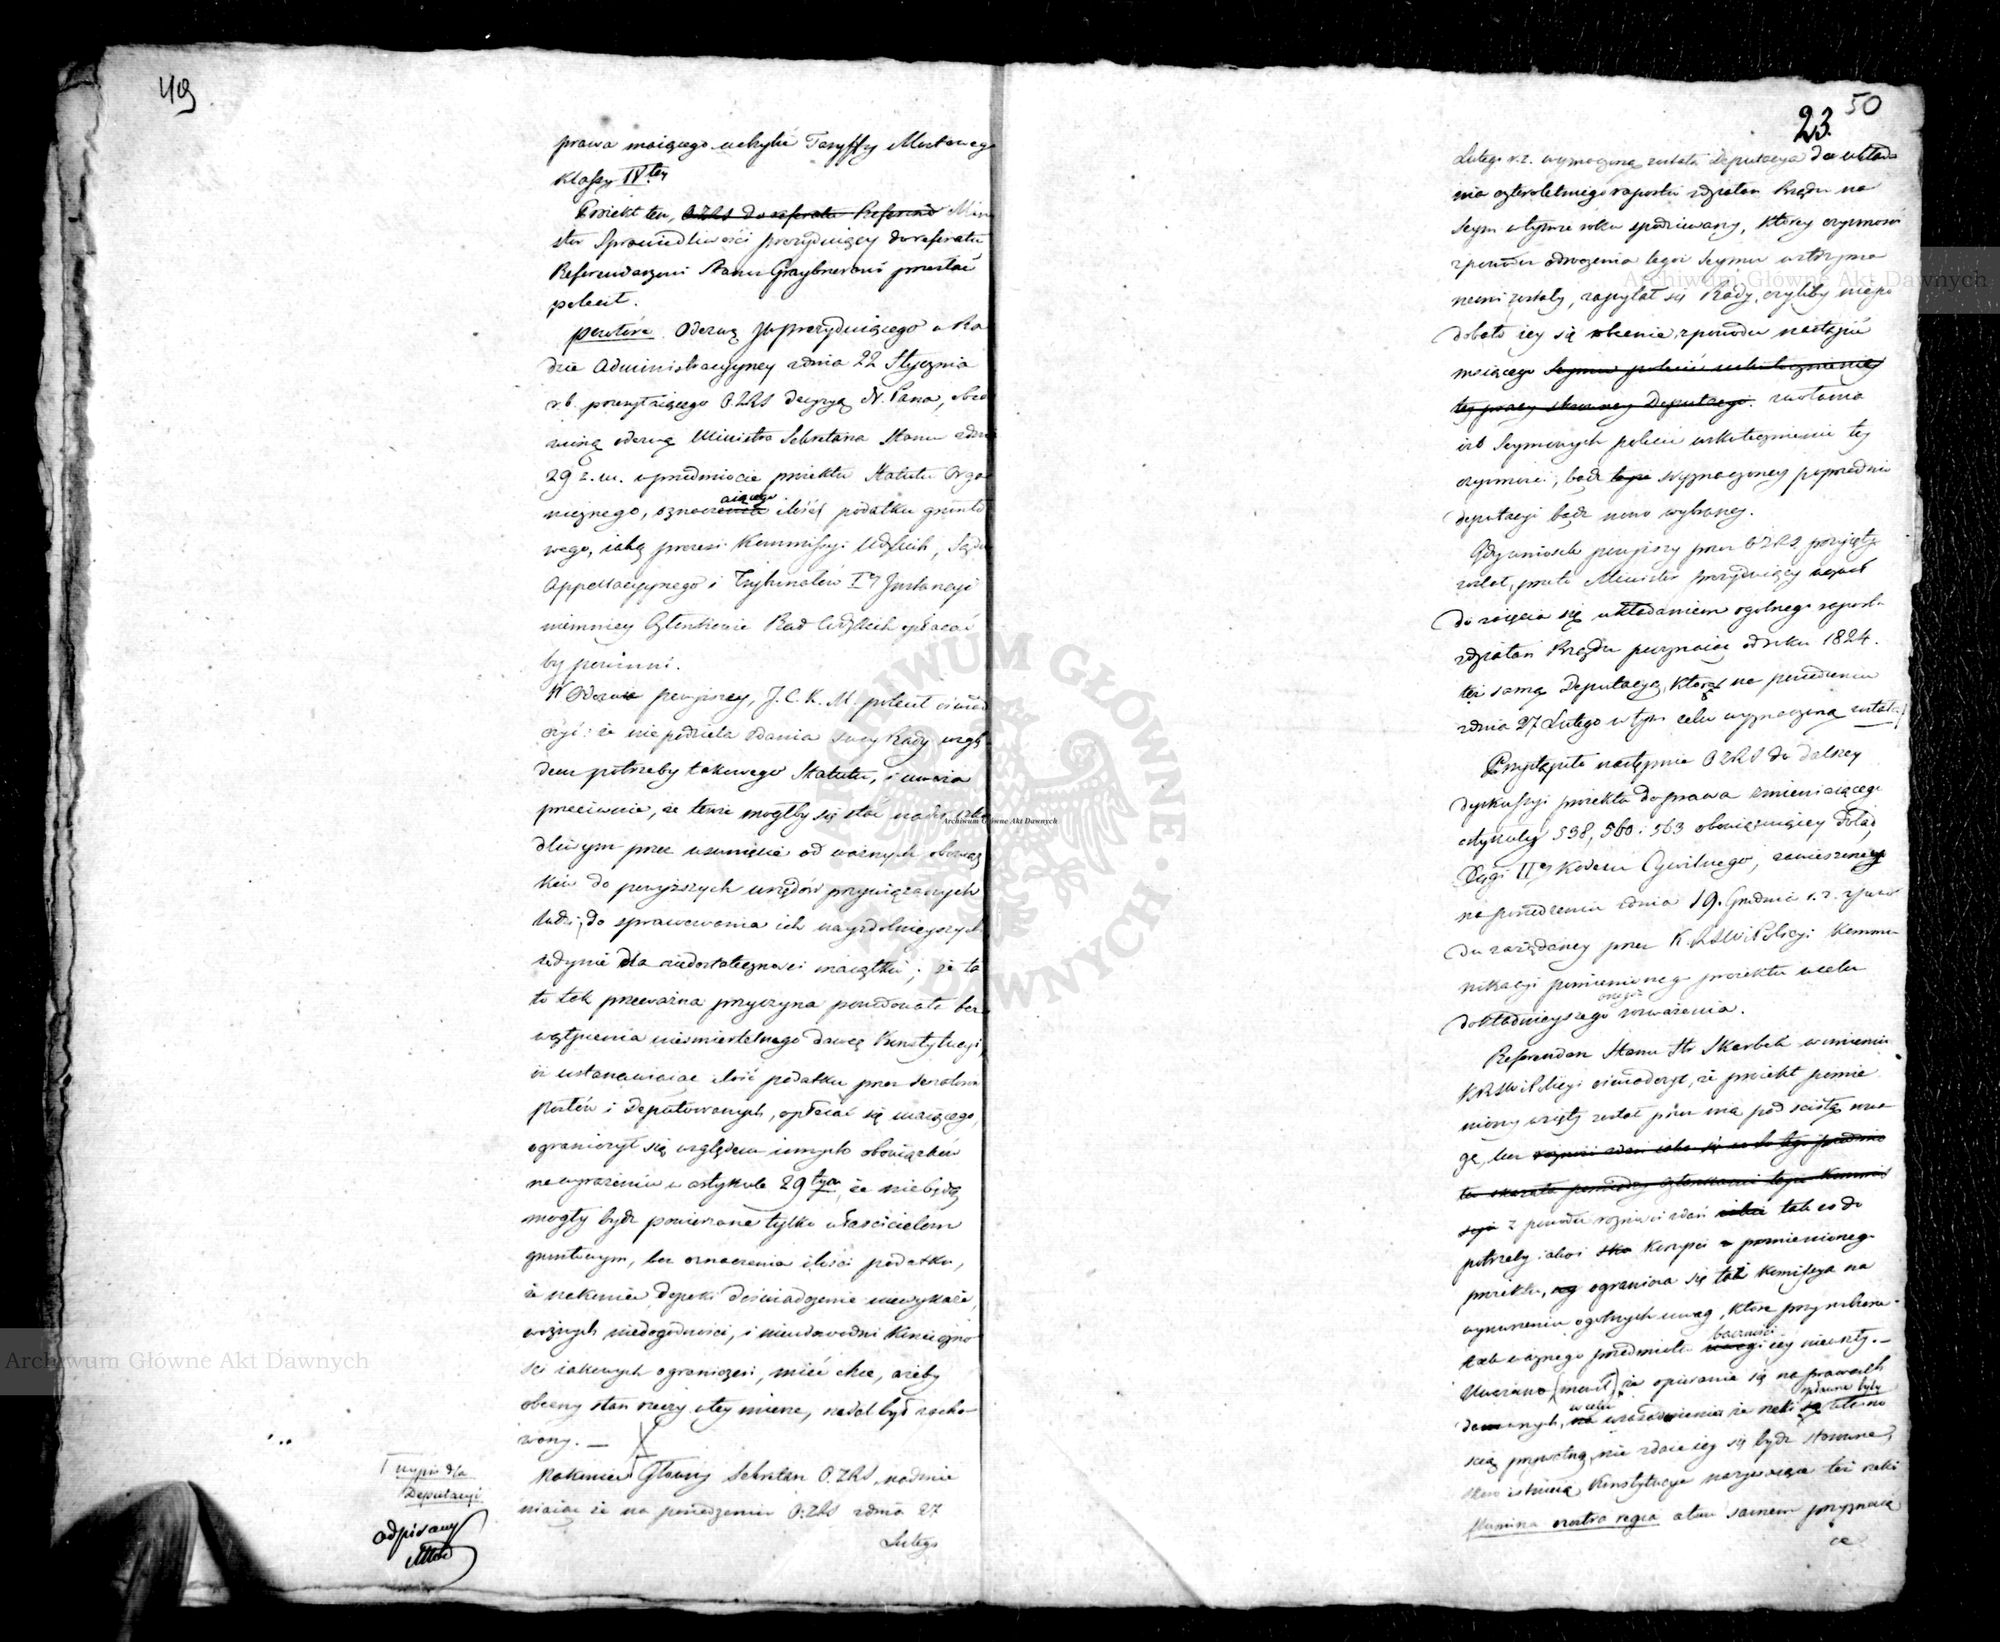 49
prawa maiącego uchylić Taryffy Mostowego
Klassy IV tey
Proiekt ten, OZRS do referatu Referend Mini
ster Sprawiedliwości prezyduiący do referatu
Referendarzowi Stanu Graybnerowi przesłać
polecił.
powtóre Odezwę JW prezyduiącego w Ra
dzie Administracyyney z dnia 22 Stycznia
r.b. przesyłaiącego OZRS decyzyą N. Pana, obię
winą odezwą Ministra Sekretarza Stanu z dnia
29 z. m. w przedmiocie proiektu Statutu Orga
nicznego, oznaczenia aiącego ilość podatku grunto
wego, iaką prezesi Kommissyi Wdzkich, Sądu
Appellacyynego i Trybunałów I ey Instancyi
niemniey Członkowie Rad Wdzkich opłacać
by powinni.
W Odezwie powyższey, J. C. K. M. polecił oświad
czyć: że nie podziela zdania swey Rady wzglę
dem potrzeby takowego Statutu, i uważa
przeciwnie, że tenże mógłby się stać nader szko
dliwym przez usunięcie od ważnych obowiąz
ków do powyższych urzędów przywiązanych
ludzi, do sprawowania ich nayzdolnieyszych
iedynie dla niedostateczności maiątku; że ta
to tak przeważna przyczyna powodowała bez
wątpienia nieśmiertelnego dawcę Konstytucyi,
iż ustanawiaiąc ilość podatku przez Senatorów
Posłów i Deputowanych, opłacać się maiącego,
ograniczył się względem innych obowiązków
na wyrażeniu w artykule 29 tym, że niebędą
mogły bydź powierzone tylko właścicielom
gruntowym, bez oznaczenia ilości podatku,
że nakoniec dopóki doświadczenie niewykaże
ważnych niedogodności, i nieudowodni koniecznо
ści iakowych ograniczeń, mieć chce, ażeby
obecny stan rzeczy w tey mierze, nadal był zacho
wany. —
Nakoniec Główny Sekretarz O.ZRS, nadmie
niaiąc że na posiedzeniu O:ZRS z dnia 27
Lutego
wypis dla
Deputacyi
odpisany
50
23.
Lutego r.z. wyznaczoną została Deputacya do układa
nia czteroletniego raportu z działań Rządu na
Seym w tymże roku spodziewany, którey czynności
z powodu odroczenia tegoż Seymu wstrzyma
nemi zostały, zapytał się Rady, czyliby niepo
dobało iey się obecnie, z powodu nastąpić
maiącego Seymu polecić uskutecznienie
tey pracy stosowney Deputacyi. zwołania
izb Seymowych polecić uskutecznienie tey
czynności, bądź teyże wyznaczoney poprzednio
deputacyi bądź nowo wybraney.
Gdy wniosek powyższy przez OZRS, przyiętym
został, przeto Minister prezyduiący wezwał
do zaięcia się układaniem ogólnego raportu
z działań Rządu poczynaiąc od roku 1824.
też samą Deputacyą, która na posiedzeniu
z dnia 27 Lutego w tym celu wyznaczoną została.
Przystąpiło następnie OZRS do dalszey
dyskussyi proiektu do prawa zmieniaiącego
artykuły 538, 560 i 563 obowiązuiącey dotąd
Xięgi II ey Kodexu Cywilnego, zawieszoney
na posiedzeniu z dnia 19. Grudnia r. z. z powo
du zażądaney przez K.RSWiPolicyi kommu
nikacyi pomienionego proiektu w celu
dokładnieyszego onegoż rozważenia.
Referendarz Stanu Hr Skarbek w imieniu
KRSWiPolicyi oświadczył, że proiekt pomie
niony wzięty został przez nią pod ścisłą uwa
gę, lecz
ta okazała pomiędzy członkami teyże Kommis
syi z powodu różności zdań tak co do
potrzeby iako i korzyści pomienionego
proiektu, ogranicza się taż Komissya na
wynurzeniu ogólnych uwag, które przy rozbiorze
tak ważnego przedmiotu uwagi baczności iey nieuszły. —
Uważano (mówił), że opisanie się na prawach
dawnych, na w celu uzasadnienia że rzeki są zdawna były własno
ścią prywatną, nie zdaie iey się bydź stosowne,
skoro istnieią Konstytucye nazywaiące też rzeki
flumina nostra regia a tem samem przyznaią
ce